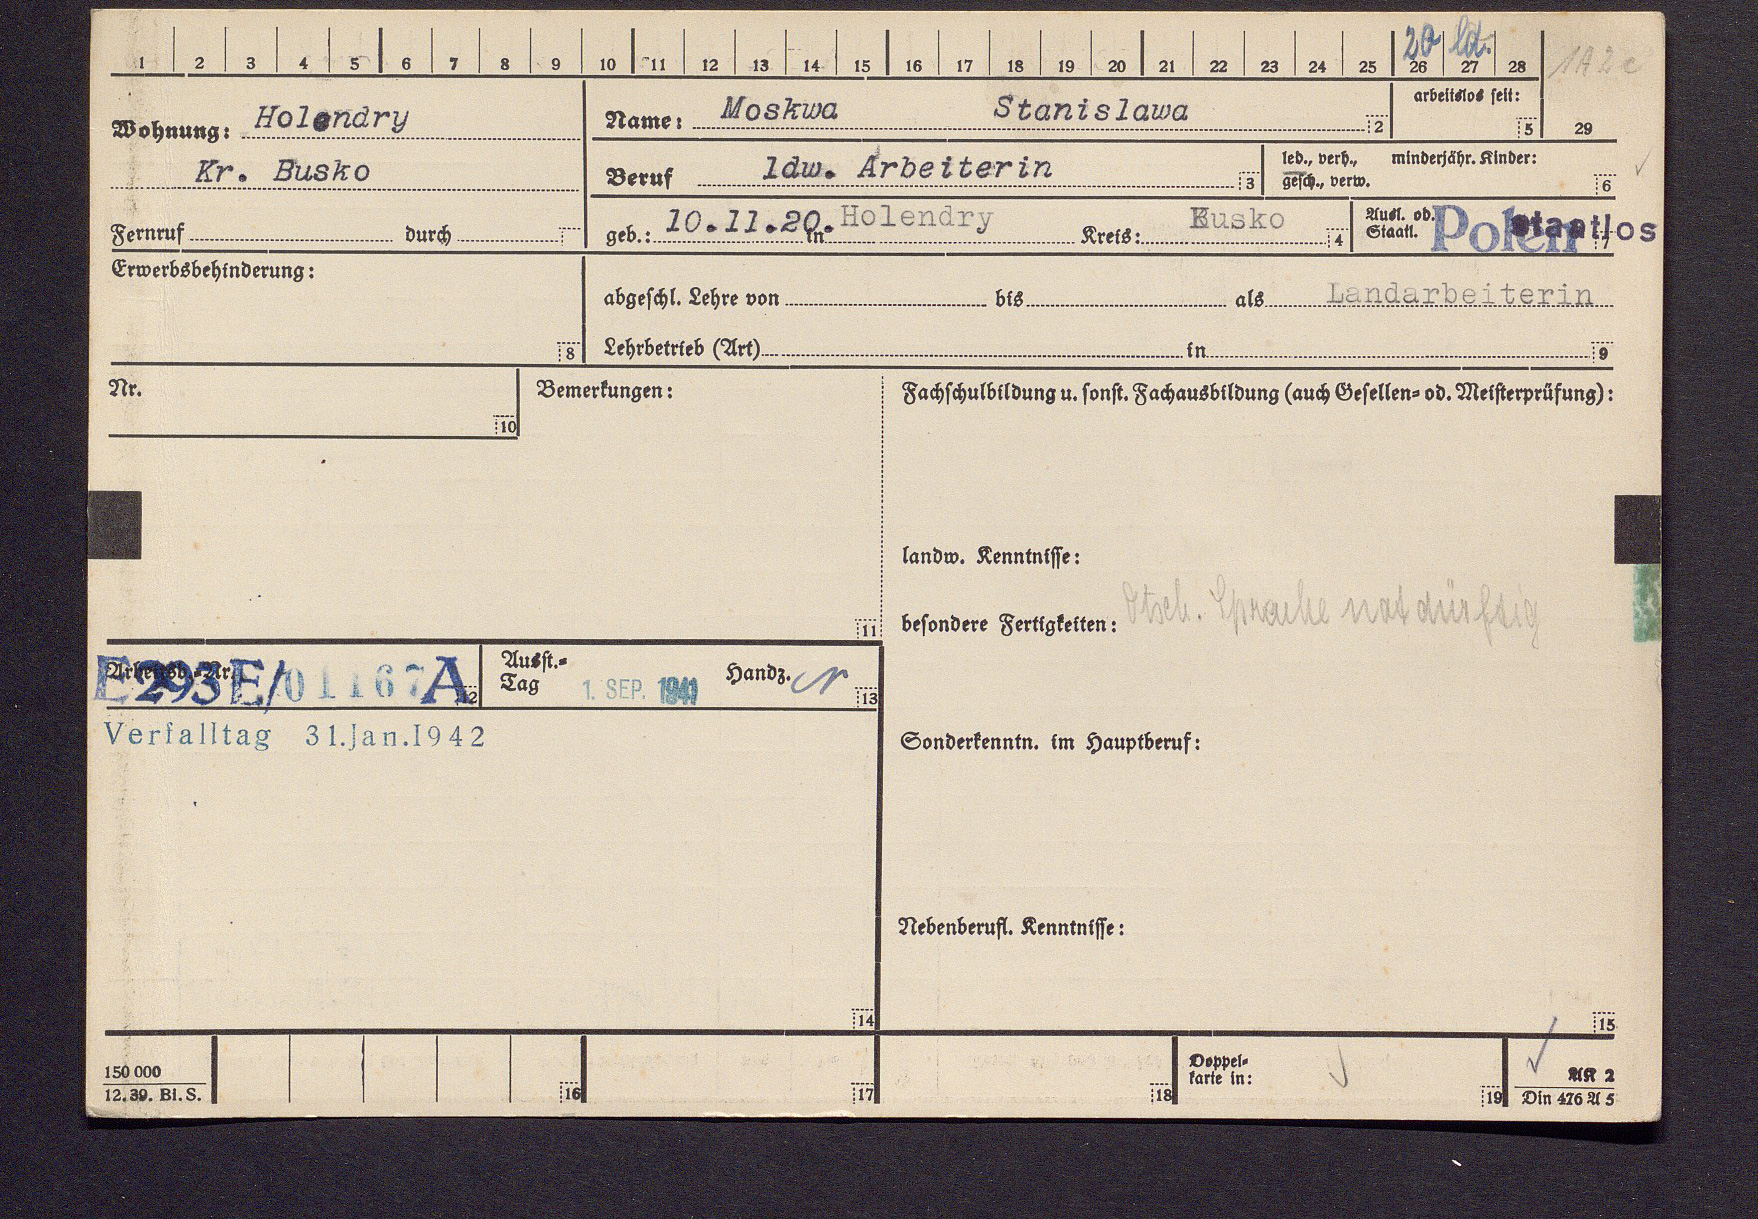 20 ld.
1 2 3 4 5 6 7 8 9 10 11 12 13 14 15 16 17 18 19 20 21 22 23 24 25 26 27 28
Wohnung: Holendry
Kr. Busko
Fernruf durch
Name: Moskwa Stanislawa 2
arbeitslos seit: 5
29
Beruf ldw. Arbeiterin 3
led., verh., minderjähr. Kinder:
gesch., verw. 6
geb.: 10.11.20. in Holendry Kreis: Busko 4
Ausl. od.
Staatl. Polen staatlos 7
Erwerbsbehinderung:
8
abgeschl. Lehre von bis als Landarbeiterin
Lehrbetrieb (Art) in 9
Nr.
10
Bemerkungen:
11
Fachschulbildung u. sonst. Fachausbildung (auch Gesellen= od. Meisterprüfung):
landw. Kenntnisse:
besondere Fertigkeiten: dtsch. Sprache notdürftig
Arbeitsb.=Nr. E293E/01167A 12
Ausst.=
Tag 1. SEP. 1941 Handz. 13
Verfalltag 31.Jan.1942
Sonderkenntn. im Hauptberuf:
Nebenberufl. Kenntnisse:
14
15
150 000
12. 39. Bl. S.
16
17
18
Doppel=
karte in:
19
AK 2
Din 476 A 5